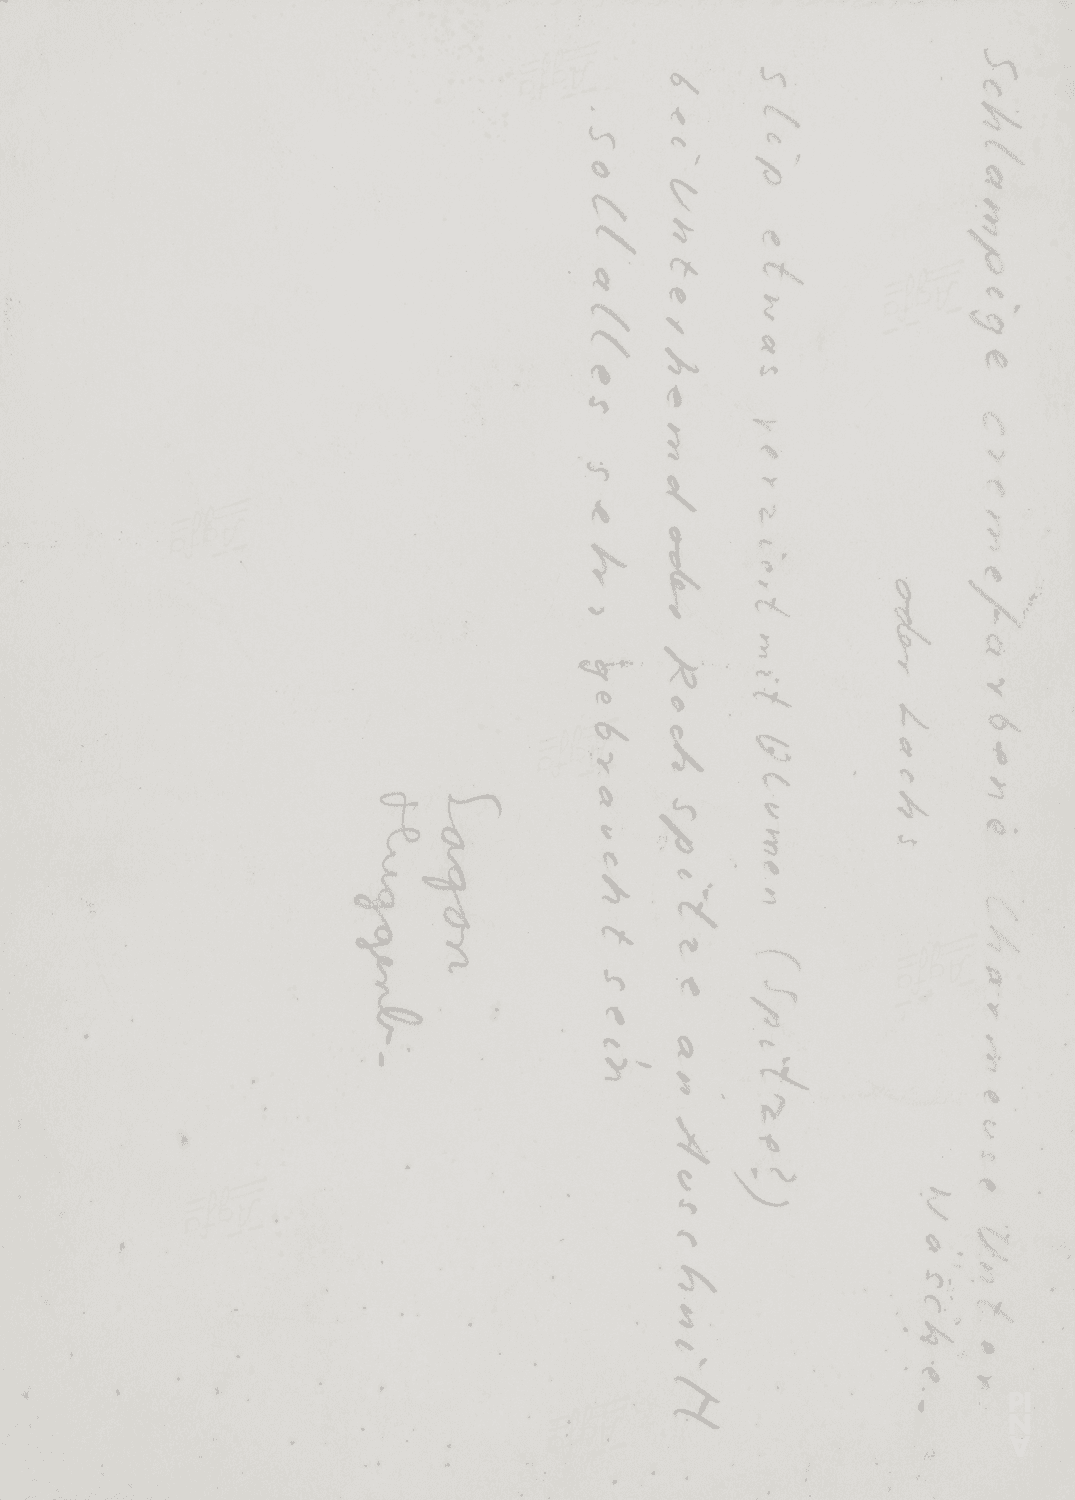 Schlampige cremefarbene Charmeuse Unter
wäsche.-
oder Lachs
slip etwas verziert mit Blumen (Spitze?)
bei Unterhemd oder Rock Spitze an Ausschnitt
. soll alles sehr gebraucht sein